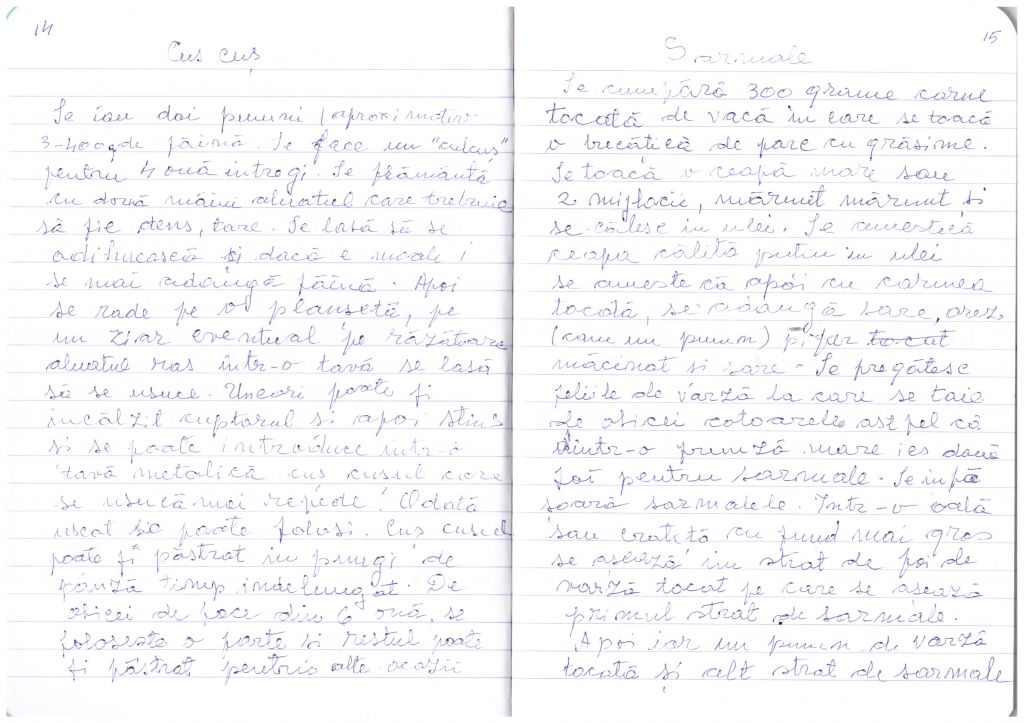 14
Cus cuș
Se iau doi pumni (aproximativ
3-400g de făină. Se face un "culcuș"
pentru 4 ouă intregi. Se frământă
cu două mâini aluatul care trebuie
să fie dens, tare. Se lasă să se
odihnească și dacă e moale!
se mai adaugă făină. Apoi
se rade pe o planșetă, pe
un ziar eventual pe răzătoare
aluatul ras într-o tavă se lasă
să se usuce. Uneori poate fi
incălzit cuptorul si apoi stins
si se poate introduce intr-o
tavă metalică cus cusul care
se usucă mai repede! Odată
uscat se poate folosi. Cuș cusul
poate fi păstrat in pungi de
pânză timp indelungat. De
obicei de face din 6 ouă, se
foloseste o parte si restul poate
fi păstrat pentru alte ocazii
15
Sarmale
Se cumpără 300 grame carne
tocată de vacă in care se toacă
o bucățică de porc cu grăsime.
Se toacă o ceapă mare sau
2 mijlocii, mărunt mărunt și
se călesc in ulei. Se amestecă
ceapa călită puțin in ulei
se amestecă apoi cu carnea
tocată, se adaugă sare, orez
(cam un pumn) piper tocat
măcinat si sare. Se pregătesc
foliile de varză la care se taie
de obicei cotoarele astfel că
dintr-o frunză mare ies două
foi pentru sarmale. Se înfă
soară sarmalele. Intr-o oală
sau cratiță cu fund mai gros
se asează un strat de foi de
varză tocat pe care se asează
primul strat de sarmale.
Apoi iar un pumn de varză
tocată și alt strat de sarmale